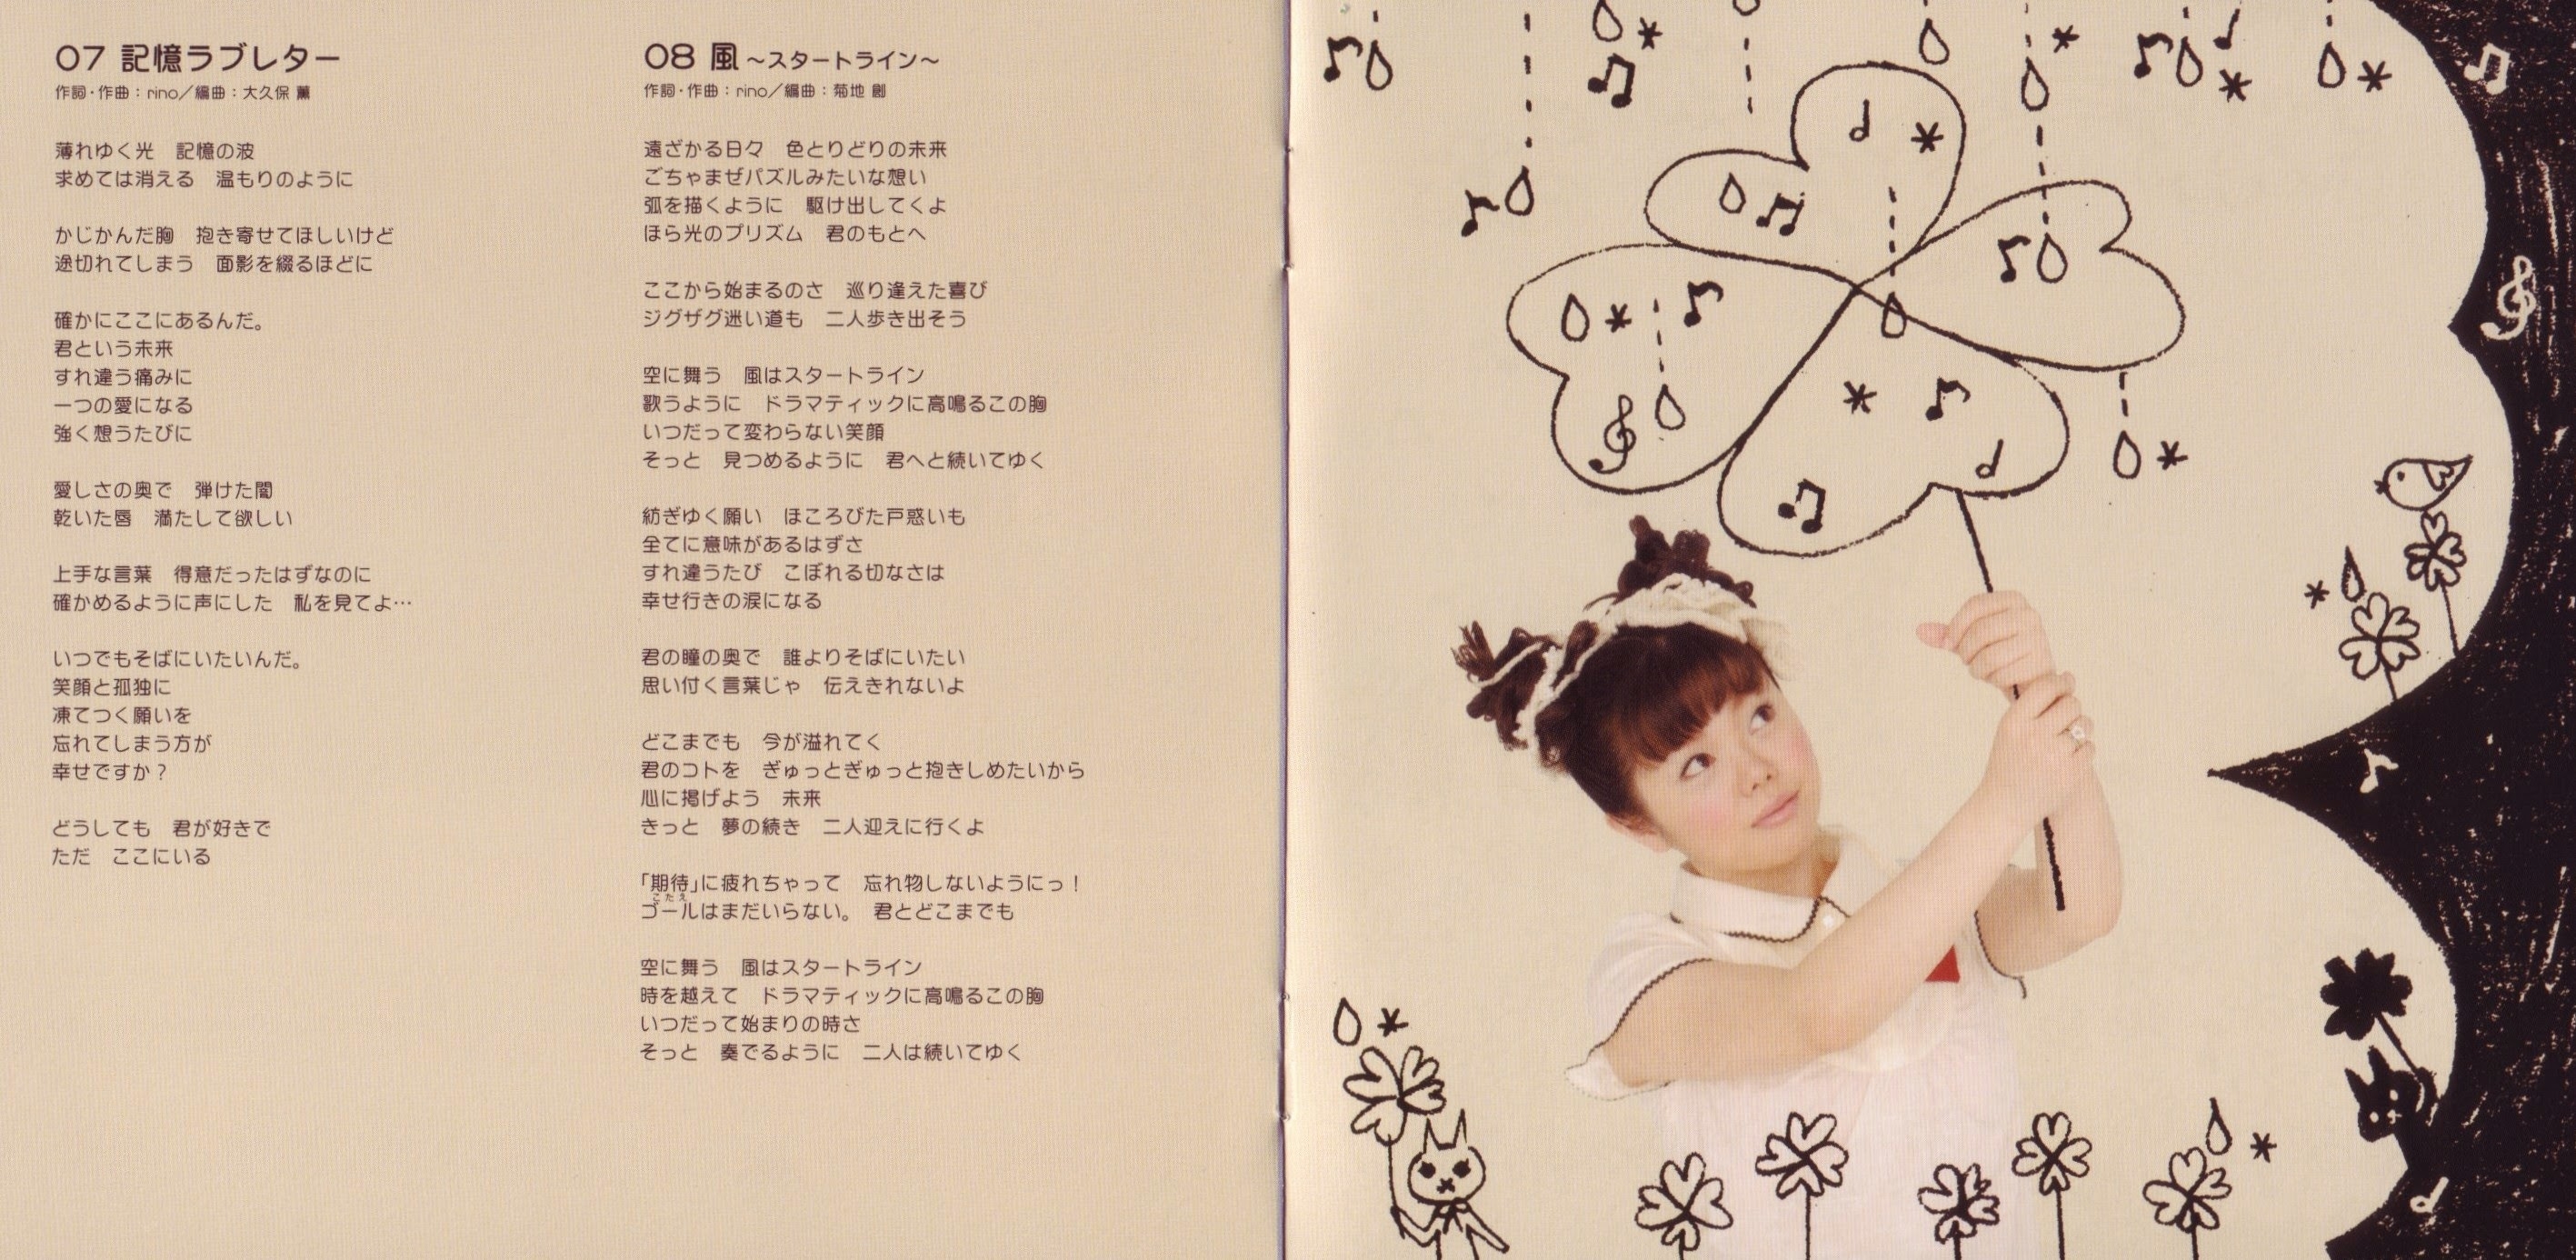 07 記憶ラブレター
作詞・作曲：rino／編曲：大久保 薫
薄れゆく光　記憶の波
求めては消える　温もりのように
かじかんだ胸　抱き寄せてほしいけど
途切れてしまう　面影を綴るほどに
確かにここにあるんだ。
君という未来
すれ違う痛みに
一つの愛になる
強く想うたびに
愛しさの奥で　弾けた闇
乾いた唇　満たして欲しい
上手な言葉　得意だったはずなのに
確かめるように声にした　私を見てよ…
いつでもそばにいたいんだ。
笑顔と孤独に
凍てつく願いを
忘れてしまう方が
幸せですか？
どうしても　君が好きで
ただ　ここにいる
08 風 ～スタートライン～
作詞・作曲：rino／編曲：菊地 創
遠ざかる日々　色とりどりの未来
ごちゃまぜパズルみたいな想い
弧を描くように　駆け出してくよ
ほら光のプリズム　君のもとへ
ここから始まるのさ　巡り逢えた喜び
ジグザグ迷い道も　二人歩き出そう
空に舞う　風はスタートライン
歌うように　ドラマティックに高鳴るこの胸
いつだって変わらない笑顔
そっと　見つめるように　君へと続いてゆく
紡ぎゆく願い　ほころびた戸惑いも
全てに意味があるはずさ
すれ違うたび　こぼれる切なさは
幸せ行きの涙になる
君の瞳の奥で　誰よりそばにいたい
思い付く言葉じゃ　伝えきれないよ
どこまでも　今が溢れてく
君のコトを　ぎゅっとぎゅっと抱きしめたいから
心に掲げよう　未来
きっと　夢の続き　二人迎えに行くよ
「期待」に疲れちゃって　忘れ物しないようにっ！
こたえ
ゴールはまだいらない。　君とどこまでも
空に舞う　風はスタートライン
時を越えて　ドラマティックに高鳴るこの胸
いつだって始まりの時さ
そっと　奏でるように　二人は続いてゆく